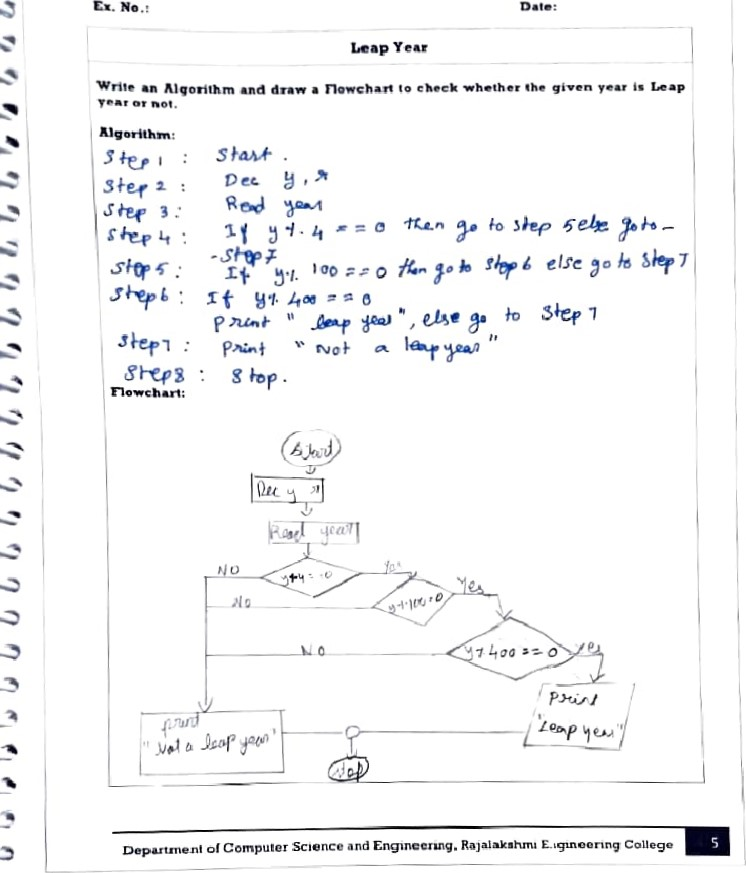 Ex. No.: Date:
Leap Year
Write an Algorithm and draw a Flowchart to check whether the given year is Leap
year or not.
Algorithm:
Step 1 : Start .
Step 2 : Dec y,
Step 3 : Read year
Step 4 : If y % 4 == 0 then go to step 5 else go to -
- Step 7
Step 5 : If y % 100 == 0 then go to Step 6 else go to Step 7
Step 6 : If y % 400 == 0
Print " leap year", else go to Step 7
Step 7 : Print " Not a leap year "
Step 8 : Stop .
Flowchart:
Start
Dec y
Read year
NO
Yes
No
y%100=0
Yes
NO
y%400==0
yes
print
" Not a leap year"
Print
"Leap year"
stop
Department of Computer Science and Engineering, Rajalakshmi Engineering College 5